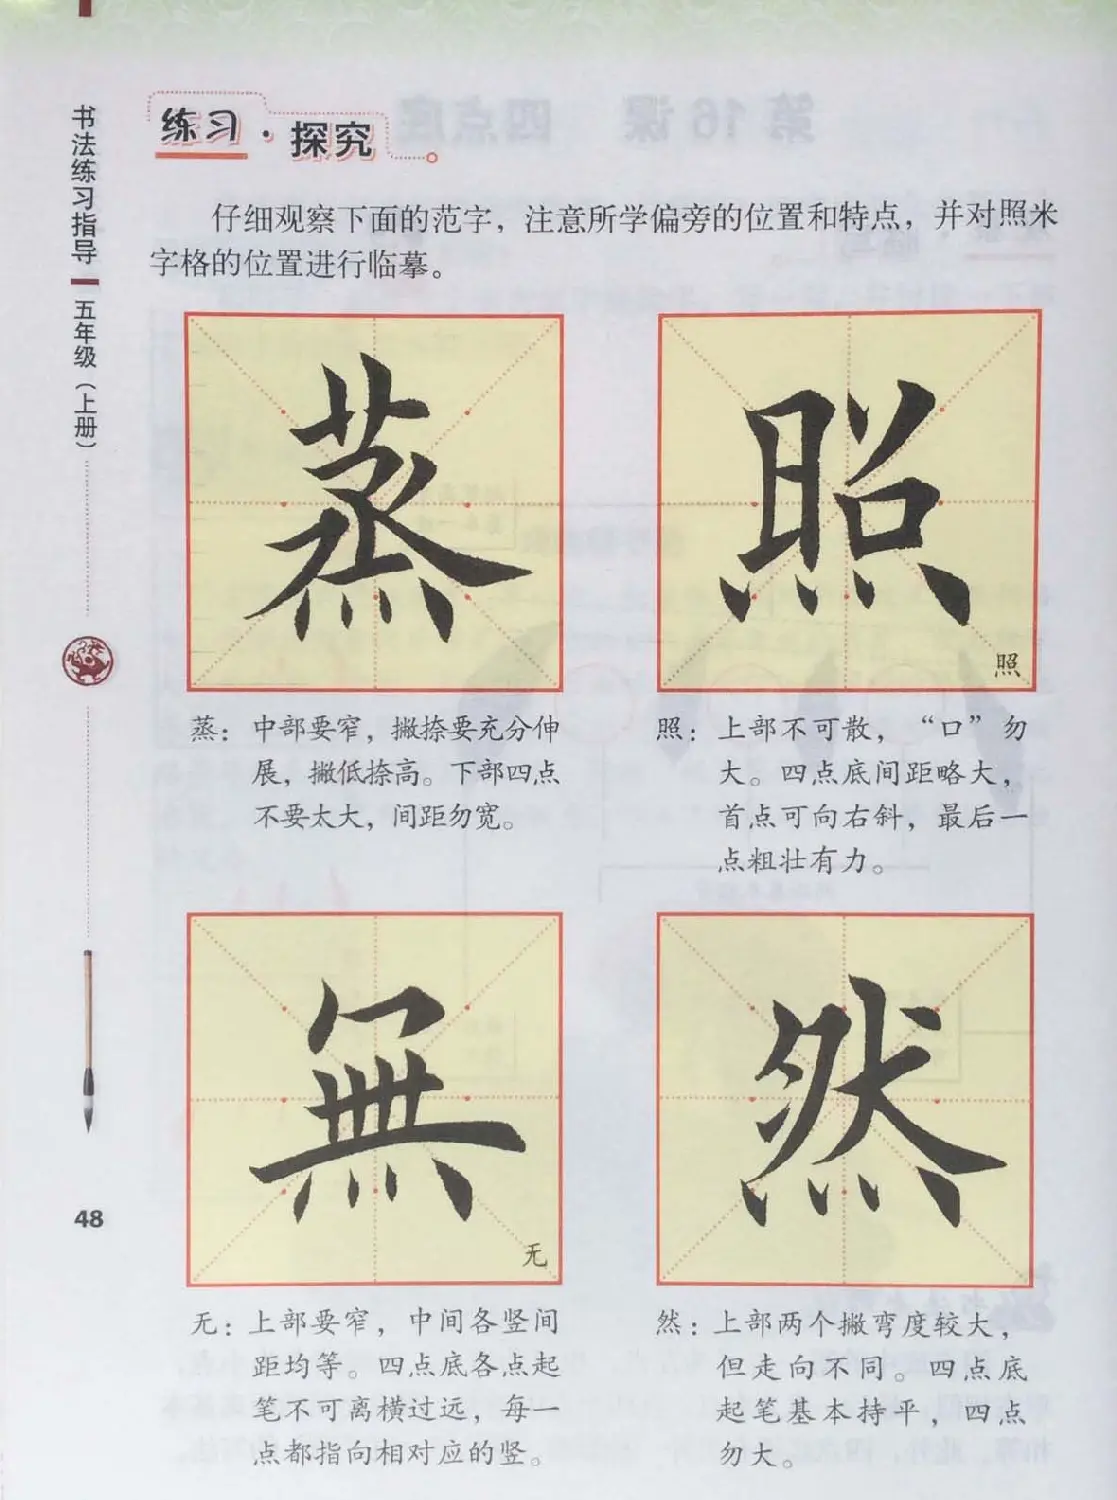 书法练习指导
五年级（上册）
48
练习·探究
仔细观察下面的范字，注意所学偏旁的位置和特点，并对照米
字格的位置进行临摹。
蒸
照
照
蒸：中部要窄，撇捺要充分伸
展，撇低捺高。下部四点
不要太大，间距勿宽。
照：上部不可散，“口”勿
大。四点底间距略大，
首点可向右斜，最后一
点粗壮有力。
無
无
然
无：上部要窄，中间各竖间
距均等。四点底各点起
笔不可离横过远，每一
点都指向相对应的竖。
然：上部两个撇弯度较大，
但走向不同。四点底
起笔基本持平，四点
勿大。